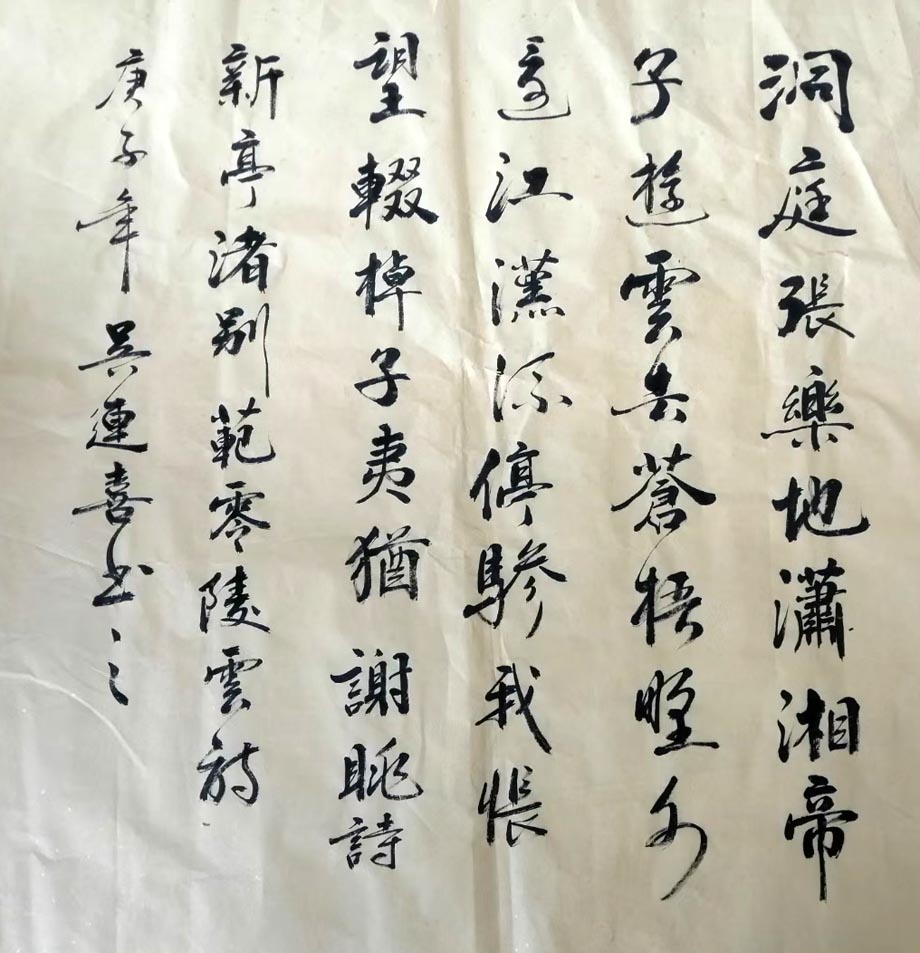 洞庭張樂地瀟湘帝
子遊雲去蒼梧野水
還江漢流停驂我悵
望輟棹子夷猶 謝眺詩
新亭渚别範零陵雲詩
庚子年 吴連喜书之